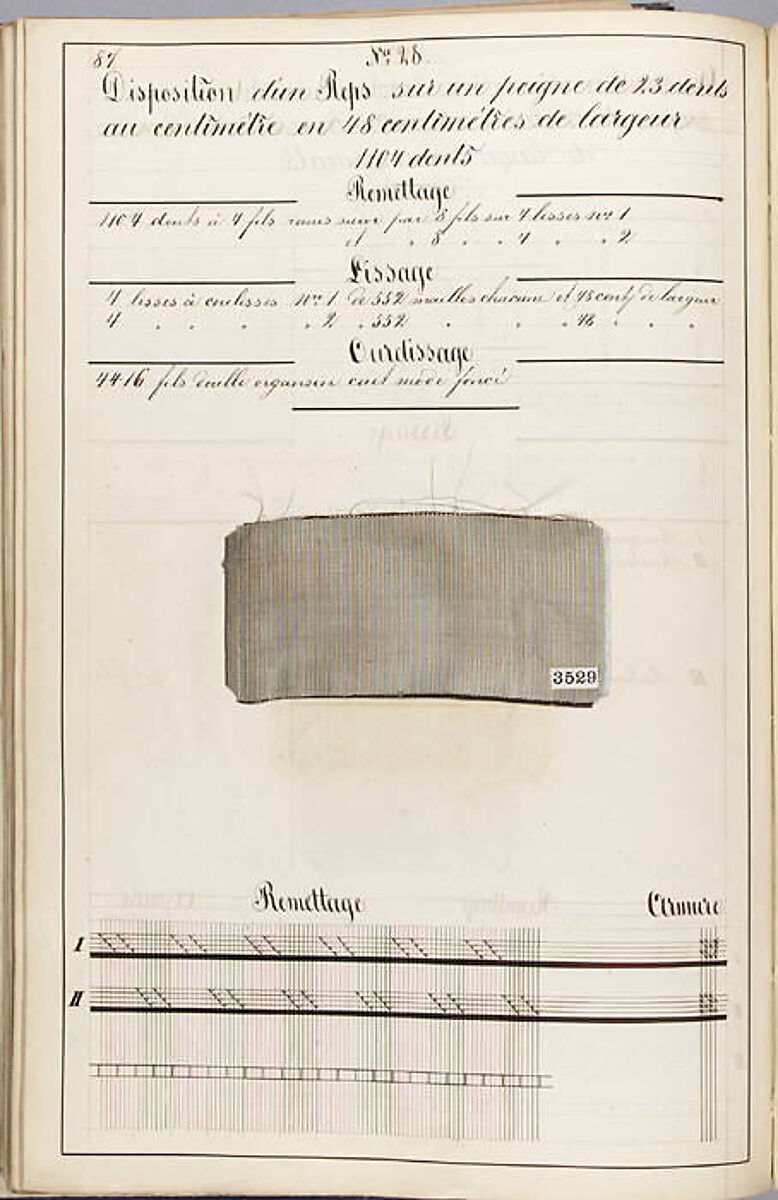 87
No 28
Disposition d'un Reps sur un peigne de 23 dents
au centimètre en 48 centimètres de largeur
1104 dents
Remettage
1104 dents à 4 fils remis suivi par 8 fils sur 4 lisses no 1
et " 8 " " 4 " " 2
Lissage
4 lisses à coulisses No 1 de 552 mailles chacune et 48 cent de largeur
4 " " " " 2 " 552 " " " 48 " " "
Ourdissage
4416 fils double organsin cuit mode foncé
3529
Remettage
Armure
I
II